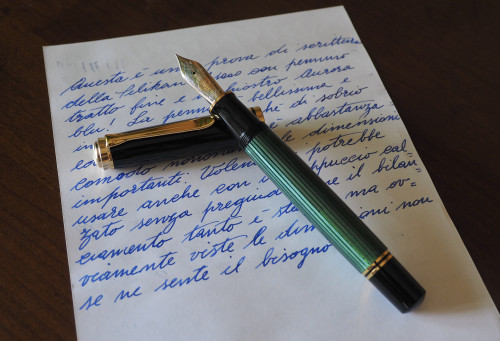 Questa è una prova di scrittura
della Pelikan con pennino
tratto fine e inchiostro Aurora
blu! La penna bellissima e
che di sobrio
comodo abbastanza
importanti. le dimensioni
Volendo potrebbe
usare anche con cappuccio cal=
zato senza il bilan=
ciamento tanto è ma ov=
viamente viste le dimensioni non
se ne sente il bisogno